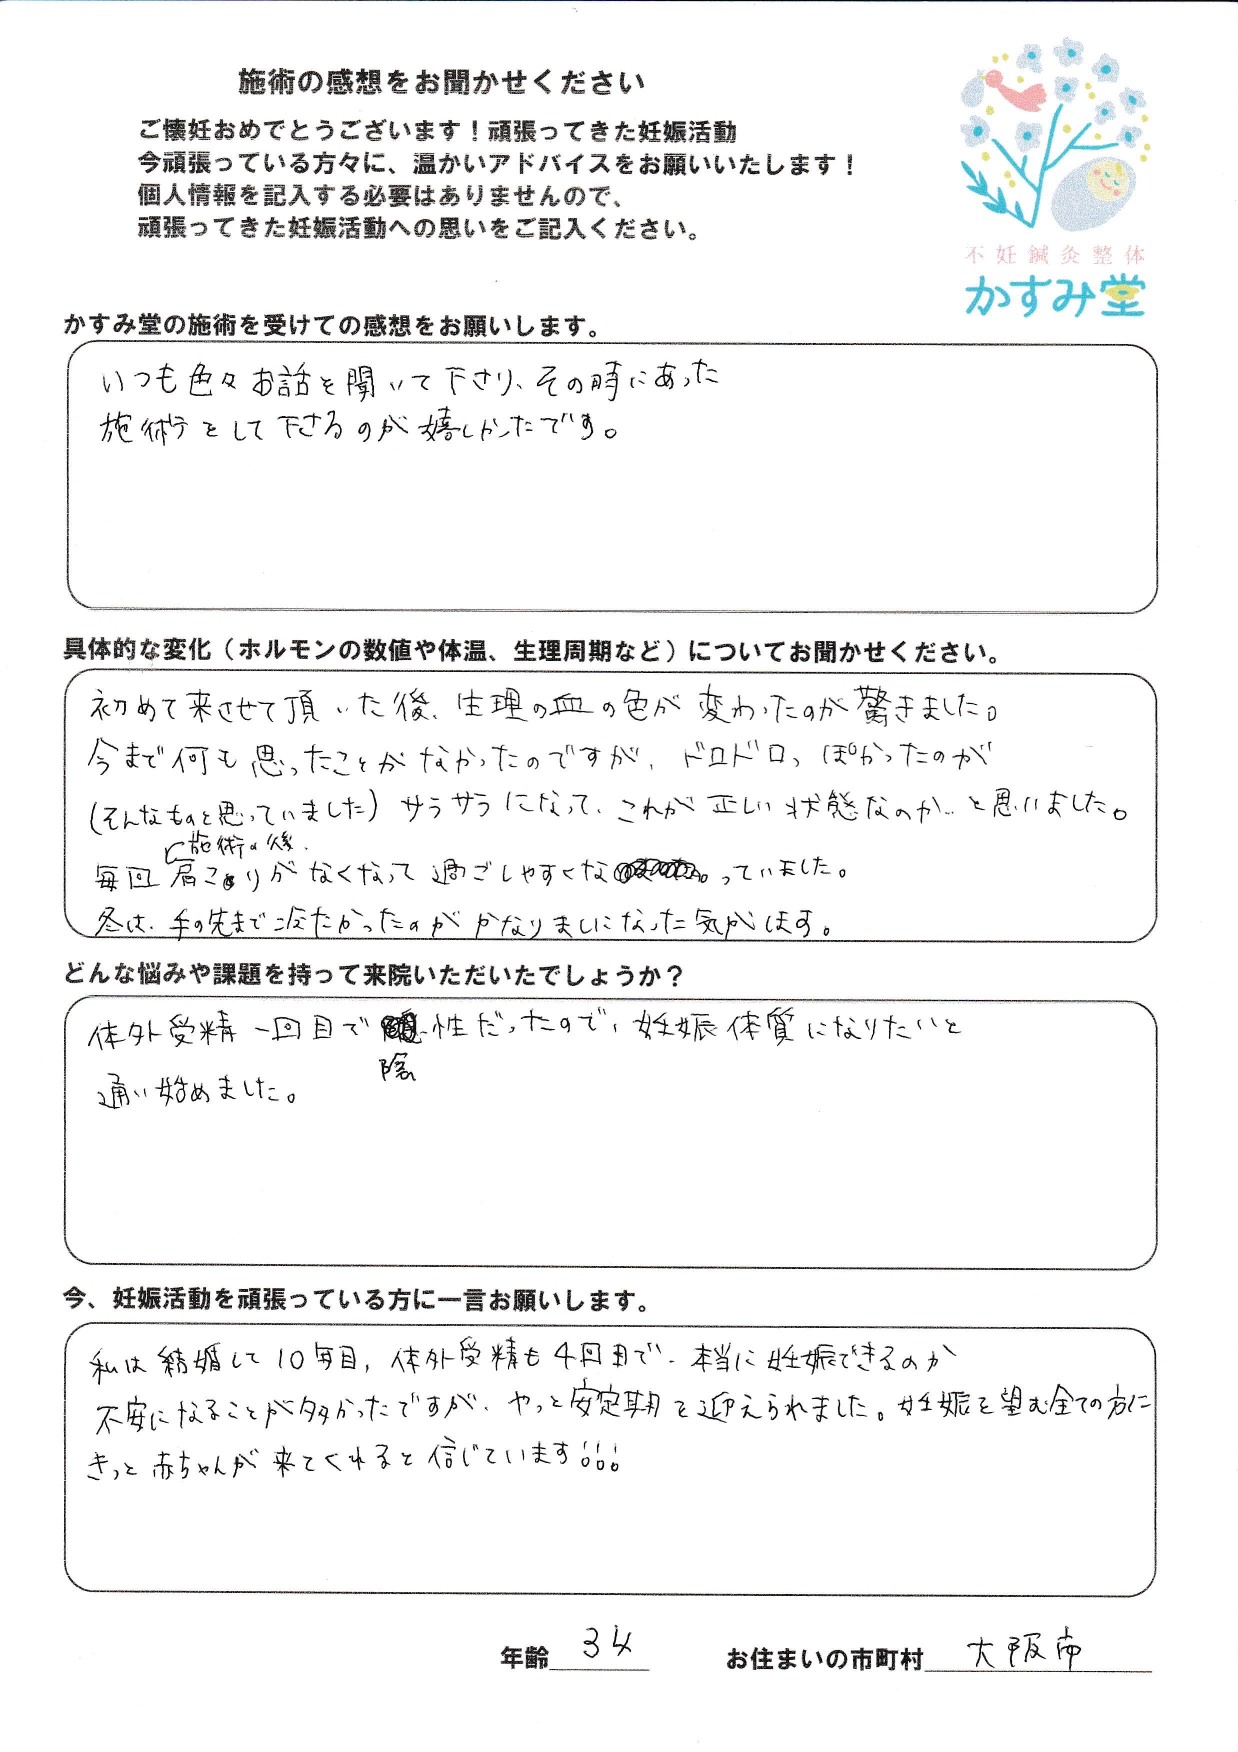 施術の感想をお聞かせください
ご懐妊おめでとうございます！頑張ってきた妊娠活動
今頑張っている方々に、温かいアドバイスをお願いいたします！
個人情報を記入する必要はありませんので、
頑張ってきた妊娠活動への思いをご記入ください。
不妊鍼灸整体
かすみ堂
かすみ堂の施術を受けての感想をお願いします。
いつも色々お話を聞いて下さり、その時にあった
施術をして下さるのが嬉しかったです。
具体的な変化（ホルモンの数値や体温、生理周期など）についてお聞かせください。
初めて来させて頂いた後、生理の血の色が変わったのが驚きました。
今まで何も思ったことがなかったのですが、ドロドロっぽかったのが
(そんなものと思っていました) サラサラになって、これが正しい状態なのか…と思いました。
施術の後、
毎回肩こりがなくなって過ごしやすくなっていました。
冬は、手の先まで冷たかったのがかなりましになった気がします。
どんな悩みや課題を持って来院いただいたでしょうか？
体外受精一回目で性だったので、妊娠体質になりたいと
陰
通い始めました。
今、妊娠活動を頑張っている方に一言お願いします。
私は結婚して10年目，体外受精も4回目で、本当に妊娠できるのか
不安になることが多かったですが、やっと安定期を迎えられました。妊娠を望む全ての方に
きっと赤ちゃんが来てくれると信じています!!!
年齢 34 お住まいの市町村 大阪市